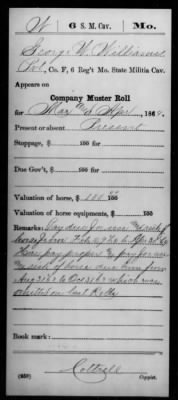 W 6 S. M. Cav. Mo.
George W. Williams
Pvt., Co. F, 6 Reg't Mo. State Militia Cav.
Appears on
Company Muster Roll
for Mar & Apr, 186
Present or absent Present
Stoppage, $ 100 for
Due Gov't, $ 100 for
Valuation of horse, $ 100
Valuation of horse equipments, $ 100
Remarks: Pay due for use & risk of
horse from Feb
Horse pay proper & pay for use
& risk of horse due him from
Aug 31 62 to Oct 31 62 which was
omitted on last Rolls
Book mark:
Cottrell
(859) Copyist.